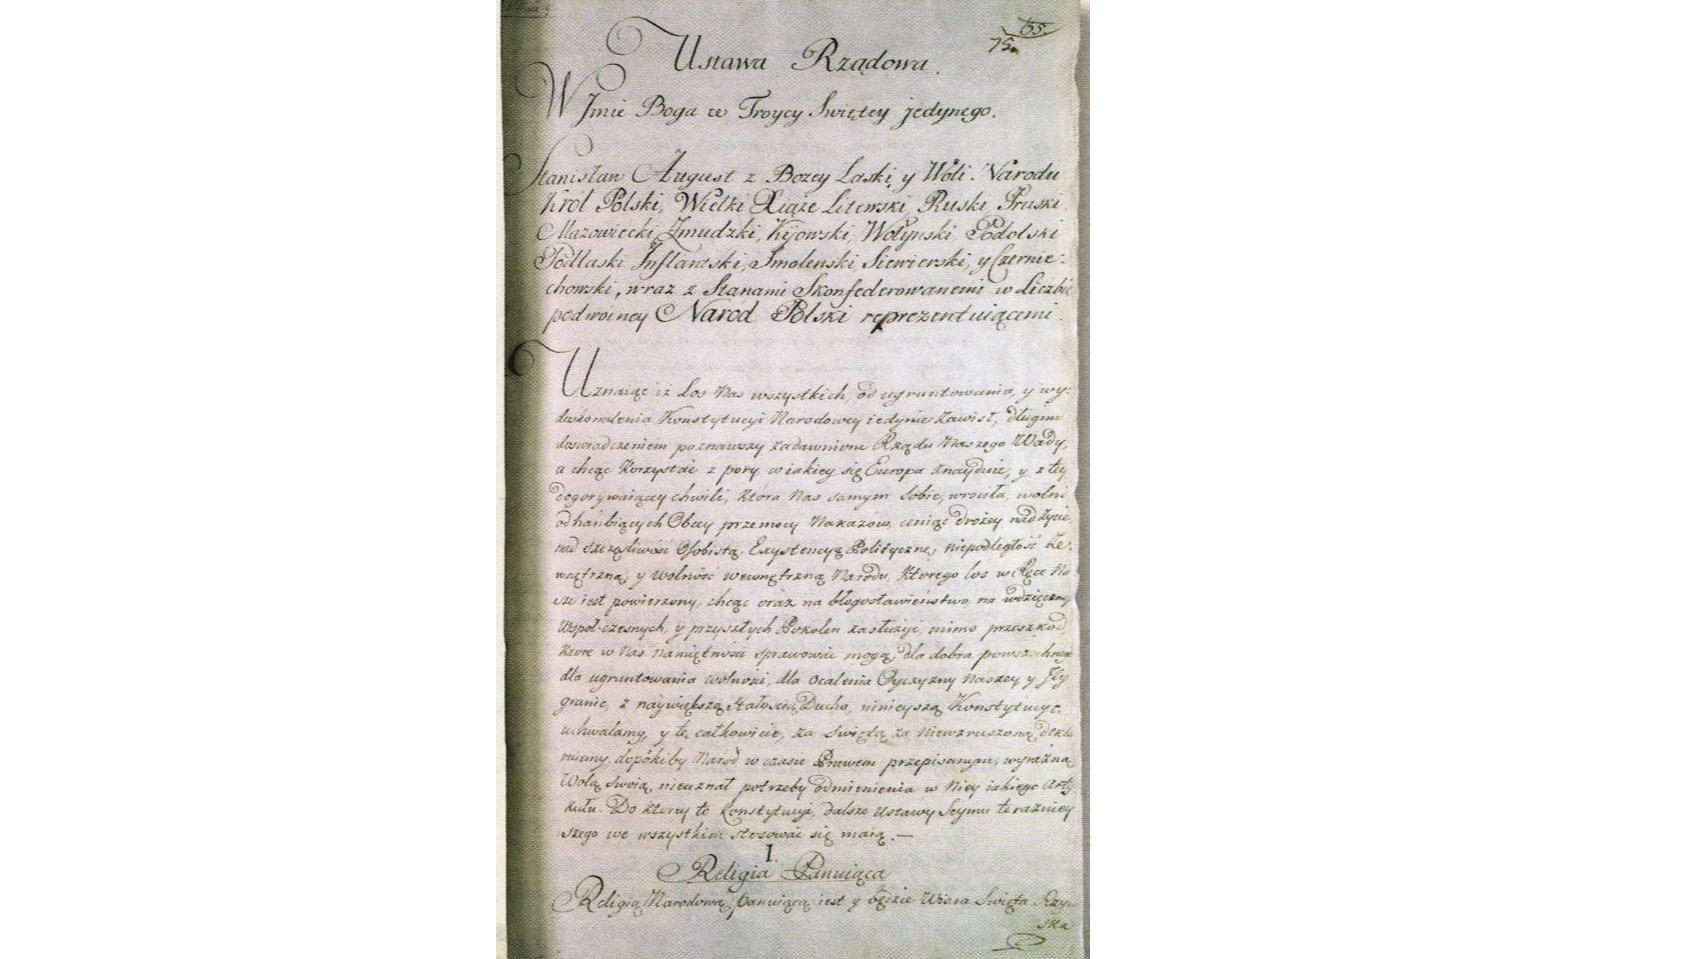 65.
75.
Ustawa Rządowa.
W Jmie Boga w Troycy Swiętey jedynego.
Stanisław August z Bozey Laski, y Woli Narodu
Król Polski, Wielki Xiąże Litewski, Ruski, Pruski,
Mazowiecki, Zmudzki, Kijowski, Wołynski, Podolski
Podlaski Inflantski, Smolenski Siewierski, y Czernie:
chowski, wraz z Stanami Skonfederowanemi w Liczbie
podwoiney Naród Polski reprezentuiącemi.
Uznaiąc iż Los Nas wszystkich, od ugruntowania, y wy:
doskonalenia Konstytucyi Narodowey iedynie zawisł, długim
doświadczeniem poznawszy zadawnione Rządu Naszego Wady,
a chcąc korzystać z pory, w iakiey się Europa znayduie, y z tey
dogorywaiącey chwili, która Nas samym sobie, wróciła, wolni
od hańbiących Obcey przemocy Nakazów, ceniąc drożey nad życie,
nad szczęśliwość Osobistą, Exystencyą Polityczną, niepodległość Ze:
wnętrzną, y wolność wewnętrzną Narodu, którego los w Ręce Na
sze iest powierzony, chcąc oraz na błogosławieństwo, na wdzięczność
Współczesnych, y przyszłych Pokolen zasłużyć, mimo przeszkód,
które w Nas namiętności sprawować mogą, dla dobra powszechnego
dla ugruntowania wolności, dla ocalenia Oyczyzny Naszey y Jey
granic, z naywiększą stałością Ducha, ninieyszą Konstytucyę
uchwalamy, y tę całkowicie, za świętą za niewzruszoną dekla
ruiemy, dopókiby Naród w czasie Prawem przepisanym, wyraźną
Wolą swoią, nieuznał potrzeby odmienienia w Niey iakiego Arty
kułu. Do którey to Konstytucyi, dalsze Ustawy Seymu teraźniey
szego we wszystkim stosować się maią. —
I.
Religia Panuiąca
Religią Narodową panuiącą iest y będzie Wiara Swięta Rzym
ska